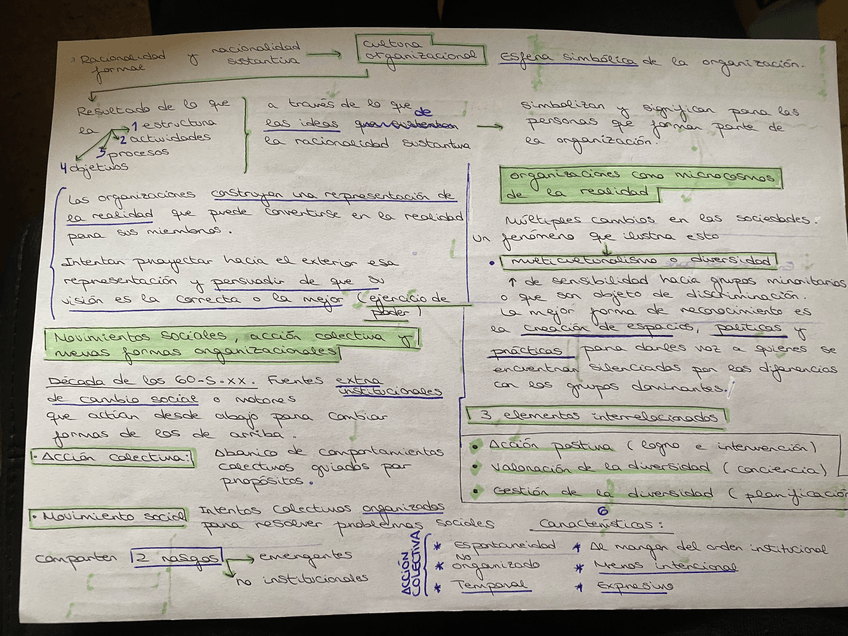 Racionalidad y racionalidad → cultura
formal sustantiva organizacional Esfera simbólica de la organización.
Resultado de lo que
la → 1 estructura
2 actividades
3 procesos
4 objetivos
a través de lo que de
las ideas
la racionalidad sustantiva
simbolizan y significan para las
personas que forman parte de
la organización.
Las organizaciones construyen una representación de
la realidad que puede convertirse en la realidad
para sus miembros.
Intentan proyectar hacia el exterior esa
representación y persuadir de que su
visión es la correcta o la mejor (ejercicio de
poder)
Movimientos sociales, acción colectiva y
nuevas formas organizacionales
Década de los 60-S.XX. Fuentes extra
institucionales
de cambio social o motores
que actúan desde abajo para cambiar
formas de los de arriba.
· Acción colectiva: Abanico de comportamientos
colectivos guiados por
propósitos.
· Movimiento social Intentos colectivos organizados
para resolver problemas sociales
comparten 2 rasgos → emergentes
no institucionales
organizaciones como microcosmos
de la realidad
Múltiples cambios en las sociedades.
un fenómeno que ilustra esto
· multiculturalismo o diversidad
↑ de sensibilidad hacia grupos minoritarios
o que son objeto de discriminación.
La mejor forma de reconocimiento es
la creación de espacios, políticas y
prácticas para darles voz a quienes se
encuentran silenciados por las diferencias
con los grupos dominantes.
3 elementos interrelacionados
• Acción positiva (logro e intervención)
• Valoración de la diversidad (conciencia)
• Gestión de la diversidad (planificación
6
Características:
ACCIÓN
COLECTIVA
* Espontaneidad
* No
organizado
* Temporal
* Al margen del orden institucional
* Menos intencional
* Expresivo